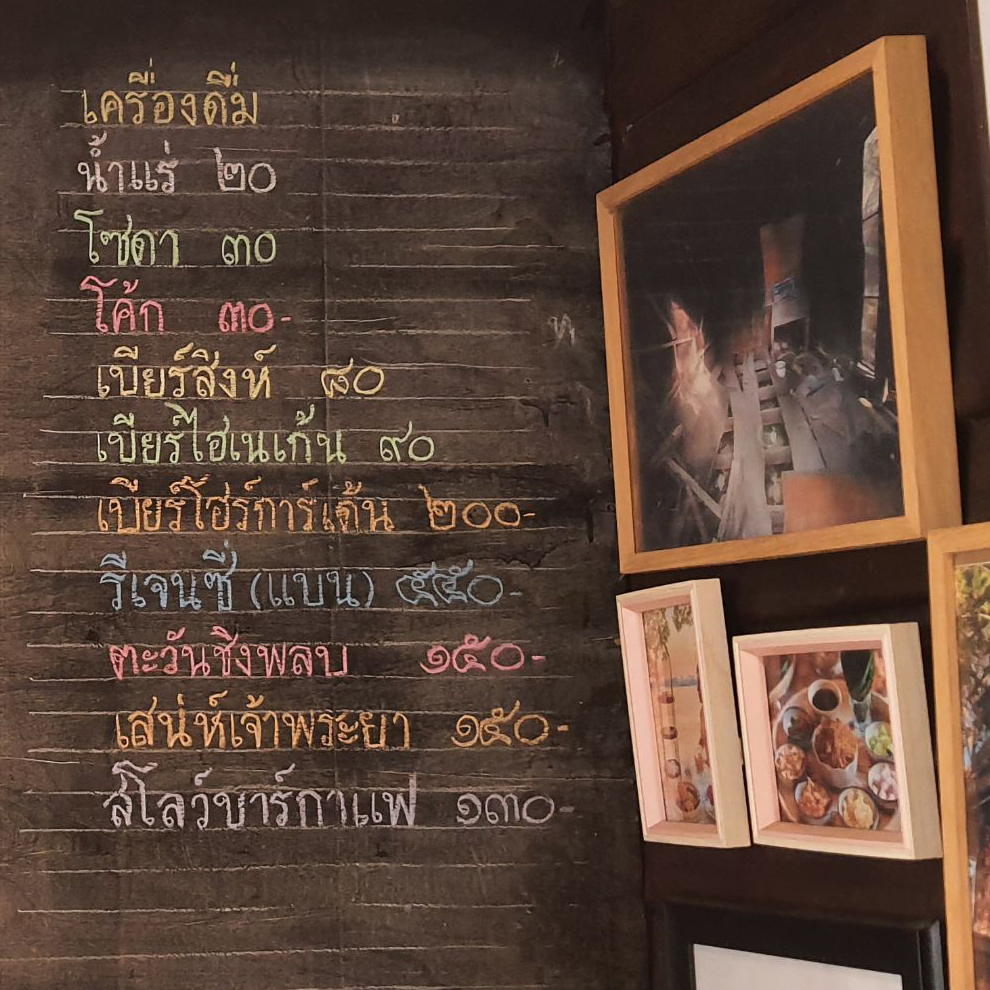 เครื่องดื่ม
น้ำแร่ ๒๐
โซดา ๓๐
โค้ก ๓๐-
เบียร์สิงห์ ๘๐
เบียร์ไฮเนเก้น ๙๐
เบียร์โฮ่ร์การ์เด้น ๒๐๐-
รีเจนซี่ (แบน) ๕๕๐-
ตะวันชิงพลบ ๑๕๐-
เสน่ห์เจ้าพระยา ๑๕๐-
สโลว์บาร์กาแฟ ๑๓๐-